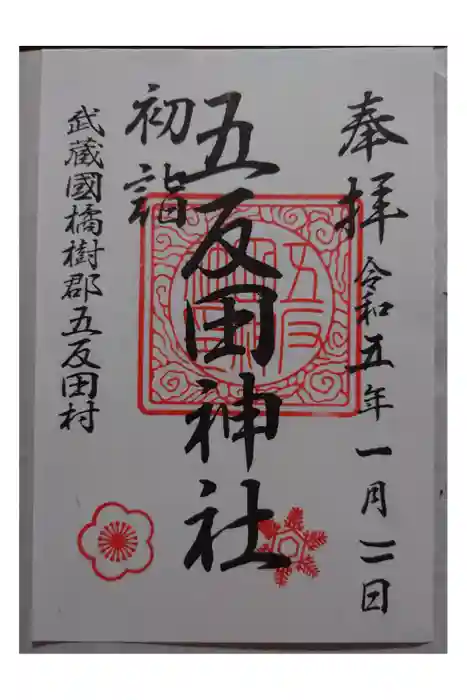 奉拝 令和五年一月二日
五反田神社
初詣
武蔵國橘樹郡五反田村
五反